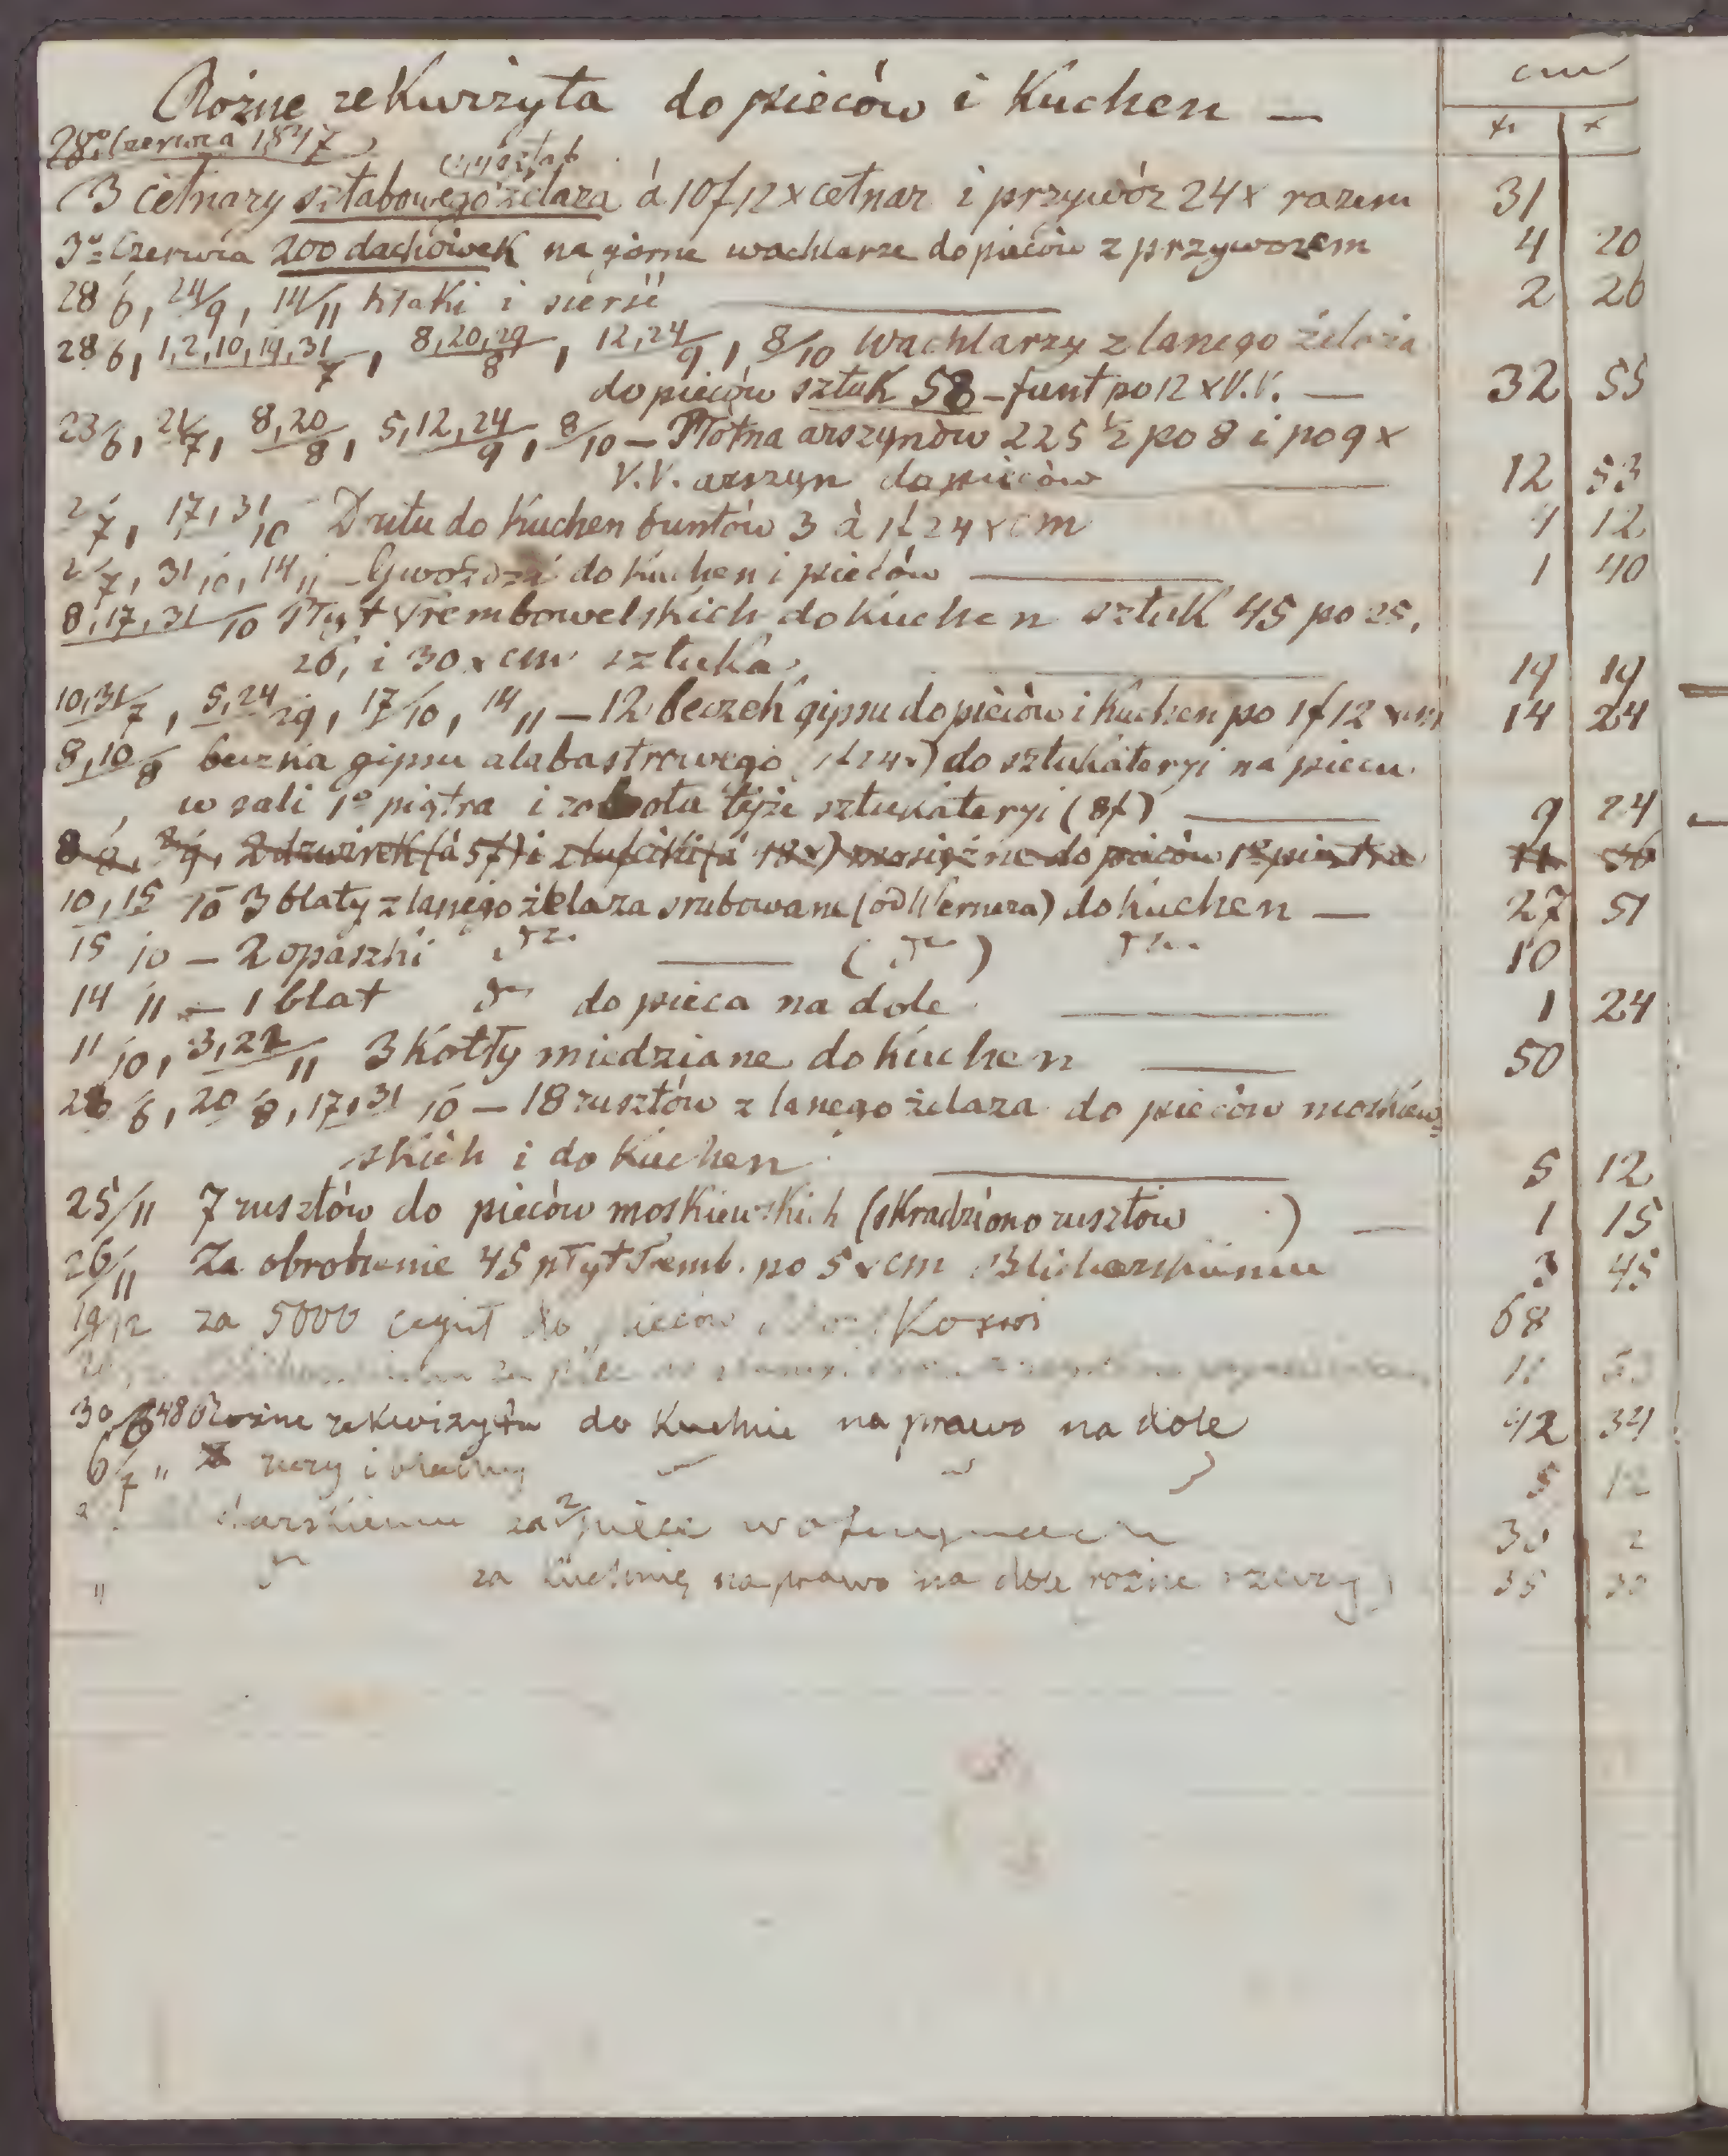 Rożne rekwizyta do pieców i Kuchen — cm
28º Czerwca 1847 xr x
3 cetnary sztabowego żelaza á 10f 12x cetnar i przywóz 24x razem 31
3º Czerwca 200 dachówek na górne wachlarze do pieców z przywozem 4 20
28/6, 24/9, 14/11 kłaki i sierść 2 26
28/6, 1,2,10,19,31/7, 8,20,29/8, 12,24/9, 8/10 Wachlarzy z lanego żelaza
do pieców sztuk 58 – funt po 12 x V.V. — 32 55
23/6, 21/7, 8,20/8, 5,12,24/9, 8/10 – Płótna arszynów 225 ½ po 8 i po 9 x
V.V. arszyn do pieców 12 53
2/7, 17,31/10 Drutu do Kuchen funtów 3 à 1f 24 x cm 4 12
2/7, 31/10, 14/11 – Gwoździ do Kuchen i pieców 1 40
8,17,31/10 Płyt Trembowelskich do Kuchen sztuk 45 po 25,
26, i 30 x cm sztuka 19 19
10,31/7, 5,24/9, 17/10, 14/11 – 12 beczek gipsu do pieców i Kuchen po 1f 12 x cm 14 24
8,10/8 beczka gipsu alabastrowego (1f 24x) do sztukateryi na piecu
w sali 1º piątra i robota tejże sztukateryi (8f) 9 24
2 dzwirek (à 5f) i słupciki (á 18x) mosiężne do pieców 1º piętra 11 36
10,15/10 3 blaty z lanego żelaza srubowane (od Wernera) do Kuchen — 27 51
15/10 – 2 opaszki dto — (dto) dto 10
14/11 – 1 blat dto do pieca na dole 1 24
11/10, 3,22/11 3 Kotły miedziane do Kuchen 50
28/6, 20/8, 17,31/10 – 18 rusztów z lanego żelaza do pieców moskiew=
skich i do Kuchen 5 12
25/11 7 rusztów do pieców moskiewskich (skradziono rusztów ) — 1 15
26/11 Za obrobienie 45 płyt Tremb. po 5 x cm 3 45
19/12 za 5000 cegieł do pieców 68
30/6 48 Rożne rekwizyta do Kuchni na prawo na dole 42 34
6/7 " rury i 5 12
za 2 piece w oficynach 30 2
" dto za Kuchnię na prawo na dole rożne rzeczy) 35 30